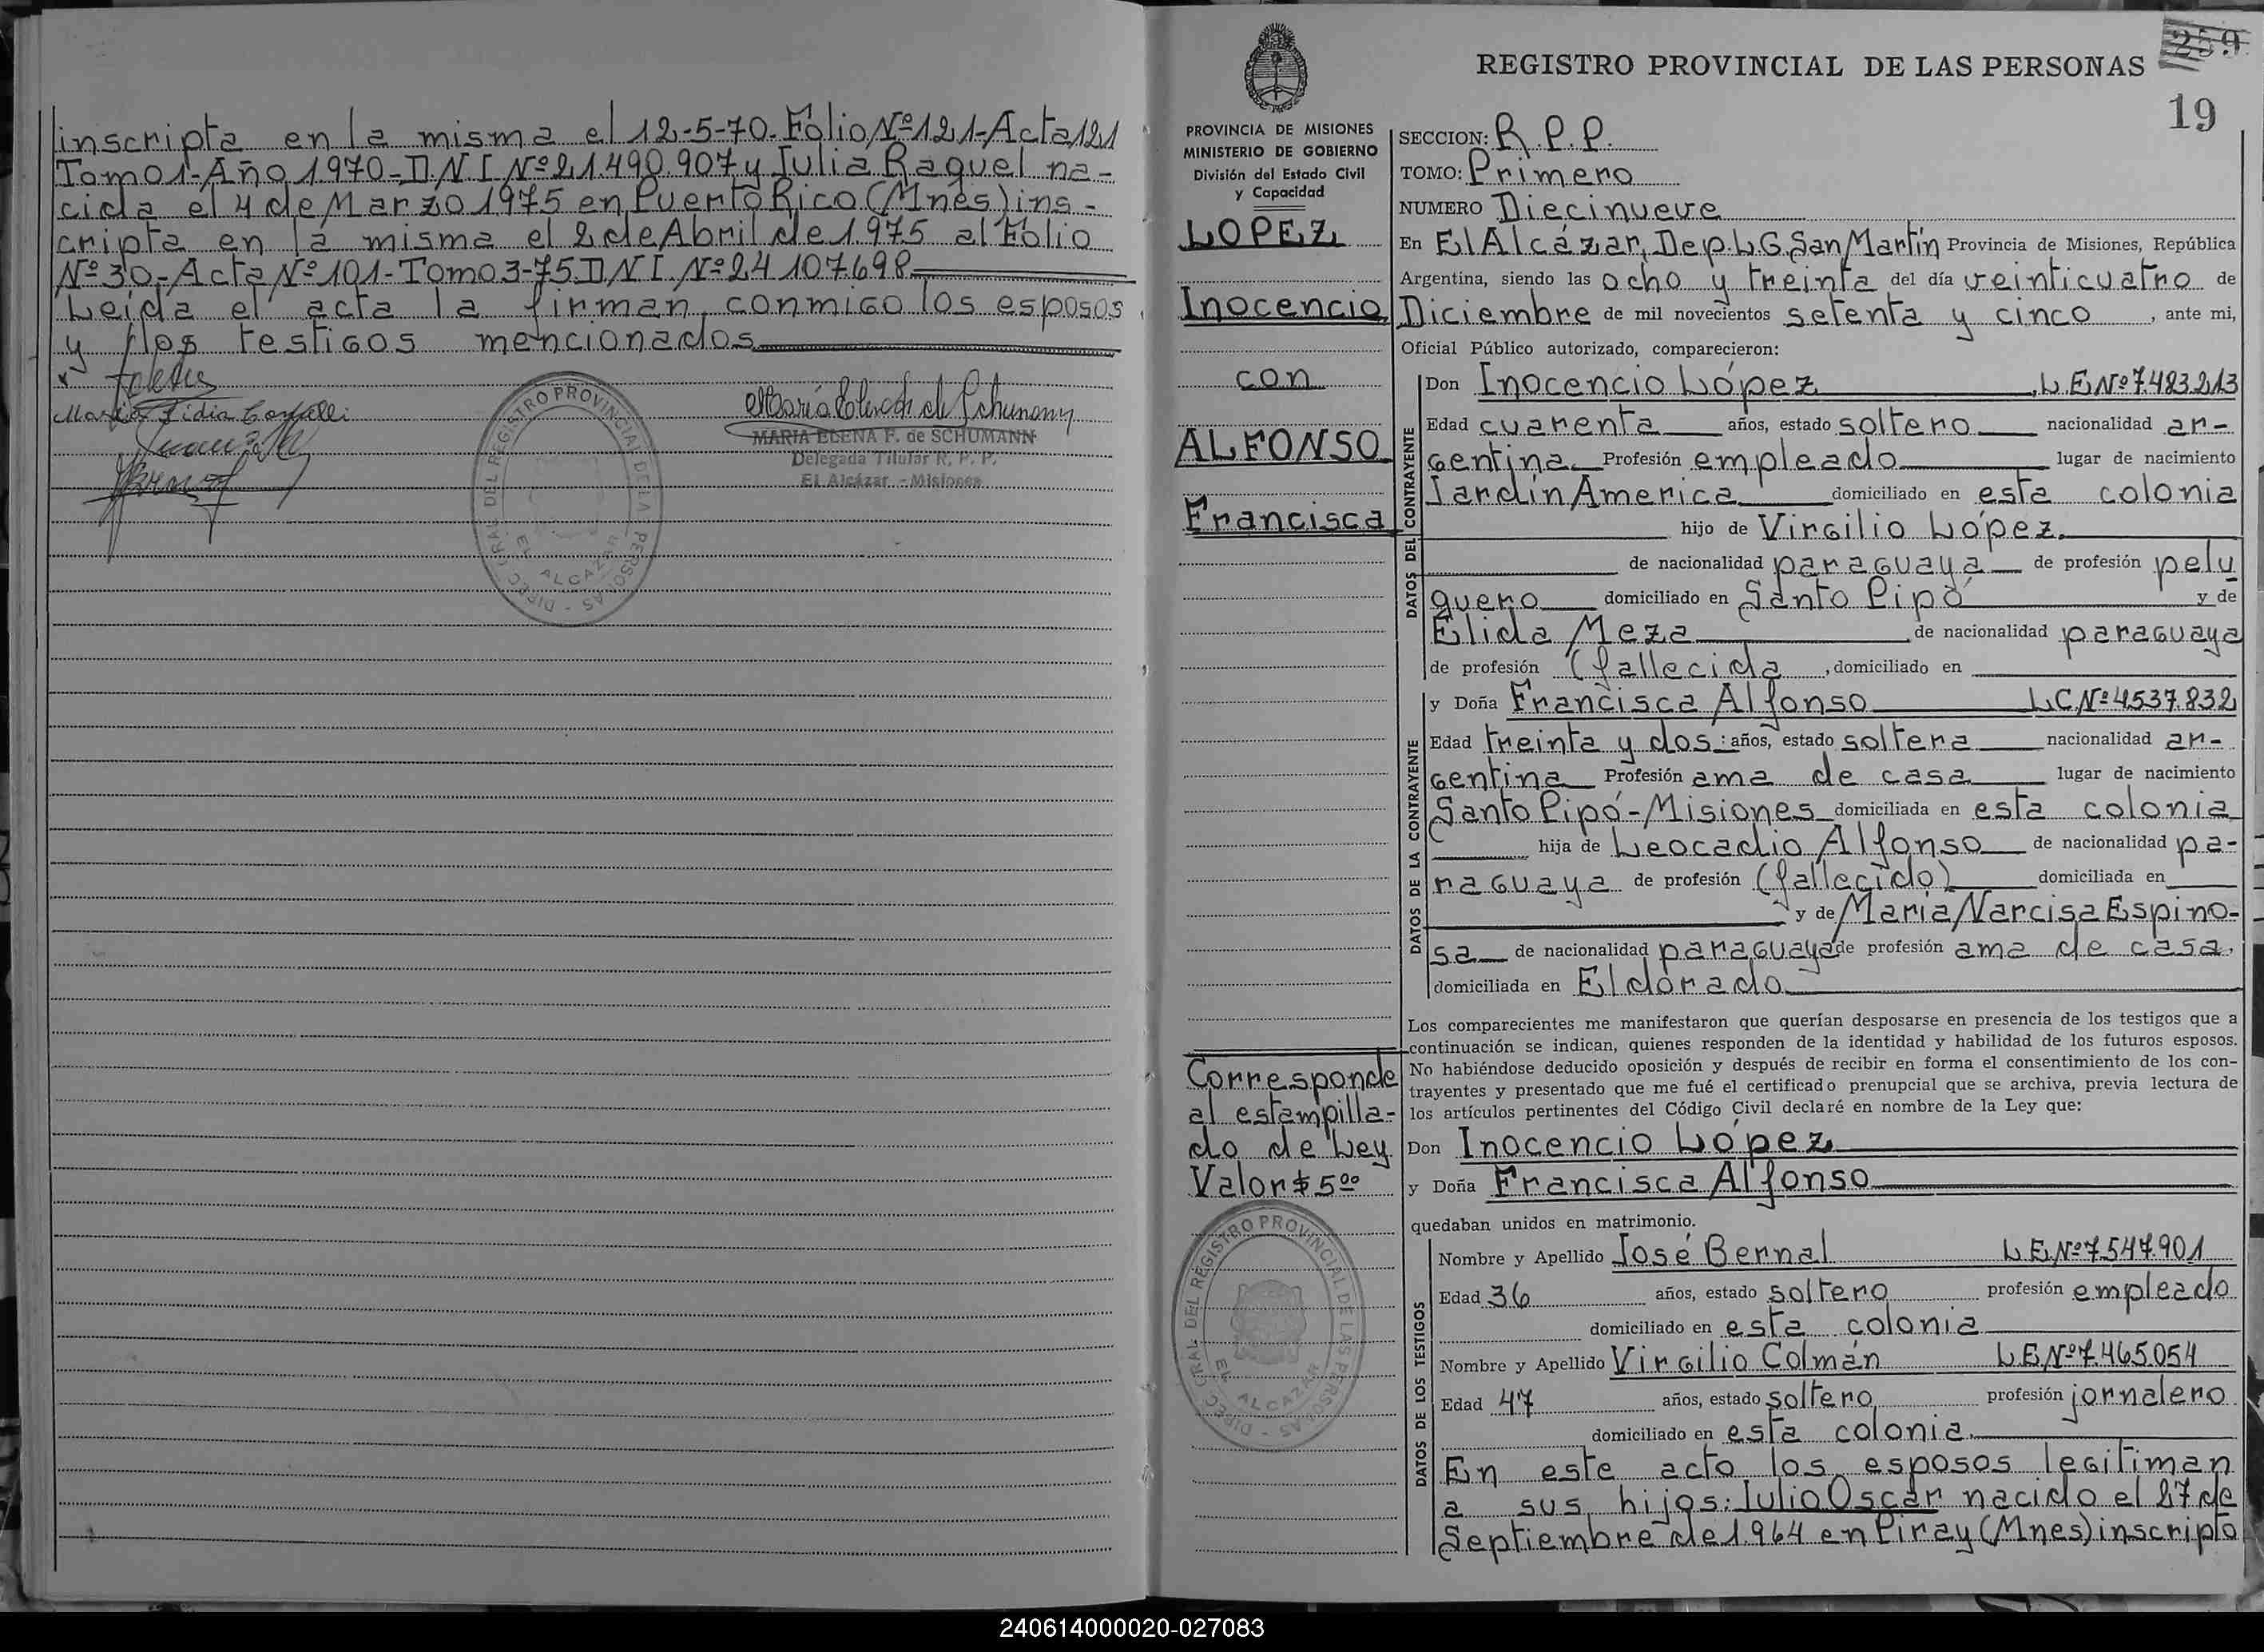 inscripta en la misma el 12-5-70-Folio Nº121-Acta 121
Tomo 1-Año 1970-D.N.I Nº21.490.907 y Julia Raquel na-
cida el 4 de Marzo 1975 en Puerto Rico (Mnes) ins-
cripta en la misma el 2 de Abril de 1975 al Folio
Nº30-Acta Nº101-Tomo 3-75 DNI. Nº24107698
Leída el acta la firman conmigo los esposos
y los testigos mencionados
MARIA ELENA F. de SCHUMANN
Delegada Titular R. P. P.
El Alcázar - Misiones
DIREC. GRAL DEL REGISTRO PROVINCIAL DE LAS PERSONAS
EL ALCAZAR
259
REGISTRO PROVINCIAL DE LAS PERSONAS
19
PROVINCIA DE MISIONES
MINISTERIO DE GOBIERNO
División del Estado Civil
y Capacidad
LOPEZ
Inocencio
con
ALFONSO
Francisca
SECCION: R.P.P.
TOMO: Primero
NUMERO Diecinueve
En El Alcázar, Dep. L.G. San Martín Provincia de Misiones, República
Argentina, siendo las ocho y treinta del día veinticuatro de
Diciembre de mil novecientos setenta y cinco, ante mi,
Oficial Público autorizado, comparecieron:
DATOS DEL CONTRAYENTE
Don Inocencio López, L.E.Nº7.483.213
Edad cuarenta años, estado soltero nacionalidad ar-
gentina Profesión empleado lugar de nacimiento
Jardín America domiciliado en esta colonia
hijo de Virgilio López
de nacionalidad paraguaya de profesión pelu
quero domiciliado en Santo Pipó y de
Elida Meza de nacionalidad paraguaya
de profesión (fallecida, domiciliado en
DATOS DE LA CONTRAYENTE
y Doña Francisca Alfonso LC.Nº4.537.832
Edad treinta y dos años, estado soltera nacionalidad ar-
gentina Profesión ama de casa lugar de nacimiento
Santo Pipó-Misiones domiciliada en esta colonia
hija de Leocadio Alfonso de nacionalidad pa-
raguaya de profesión (fallecido) domiciliada en
y de María Narcisa Espino-
sa de nacionalidad paraguaya de profesión ama de casa,
domiciliada en Eldorado
Los comparecientes me manifestaron que querían desposarse en presencia de los testigos que a
continuación se indican, quienes responden de la identidad y habilidad de los futuros esposos.
No habiéndose deducido oposición y después de recibir en forma el consentimiento de los con-
trayentes y presentado que me fué el certificado prenupcial que se archiva, previa lectura de
los artículos pertinentes del Código Civil declaré en nombre de la Ley que:
Corresponde
al estampilla-
do de Ley
Valor $5ºº
DIREC. GRAL DEL REGISTRO PROVINCIAL DE LAS PERSONAS
EL ALCAZAR
Don Inocencio López
y Doña Francisca Alfonso
quedaban unidos en matrimonio.
DATOS DE LOS TESTIGOS
Nombre y Apellido José Bernal L.E.Nº7.547.901
Edad 36 años, estado soltero profesión empleado
domiciliado en esta colonia
Nombre y Apellido Virgilio Colmán L.E.Nº7.465.054
Edad 47 años, estado soltero profesión jornalero
domiciliado en esta colonia.
En este acto los esposos legitiman
a sus hijos: Julio Oscar nacido el 27 de
Septiembre de 1964 en Piray (Mnes) inscripto
240614000020-027083